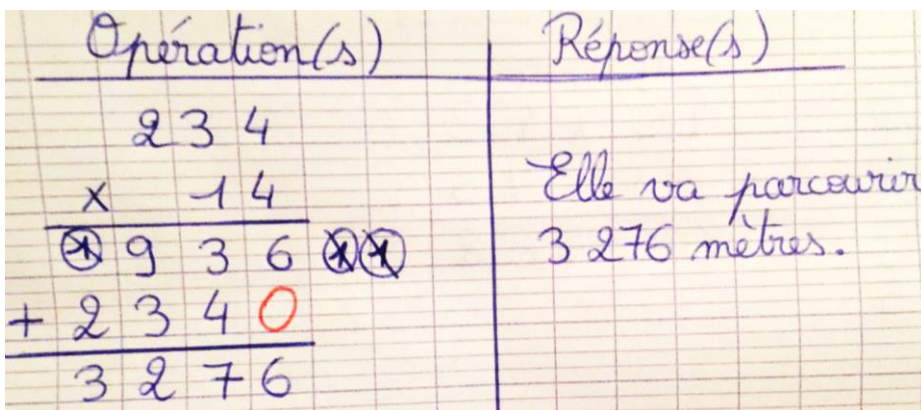 Opération(s)
234
x 14
1 936 1 1
+ 2340
3276
Réponse(s)
Elle va parcourir
3 276 mètres.